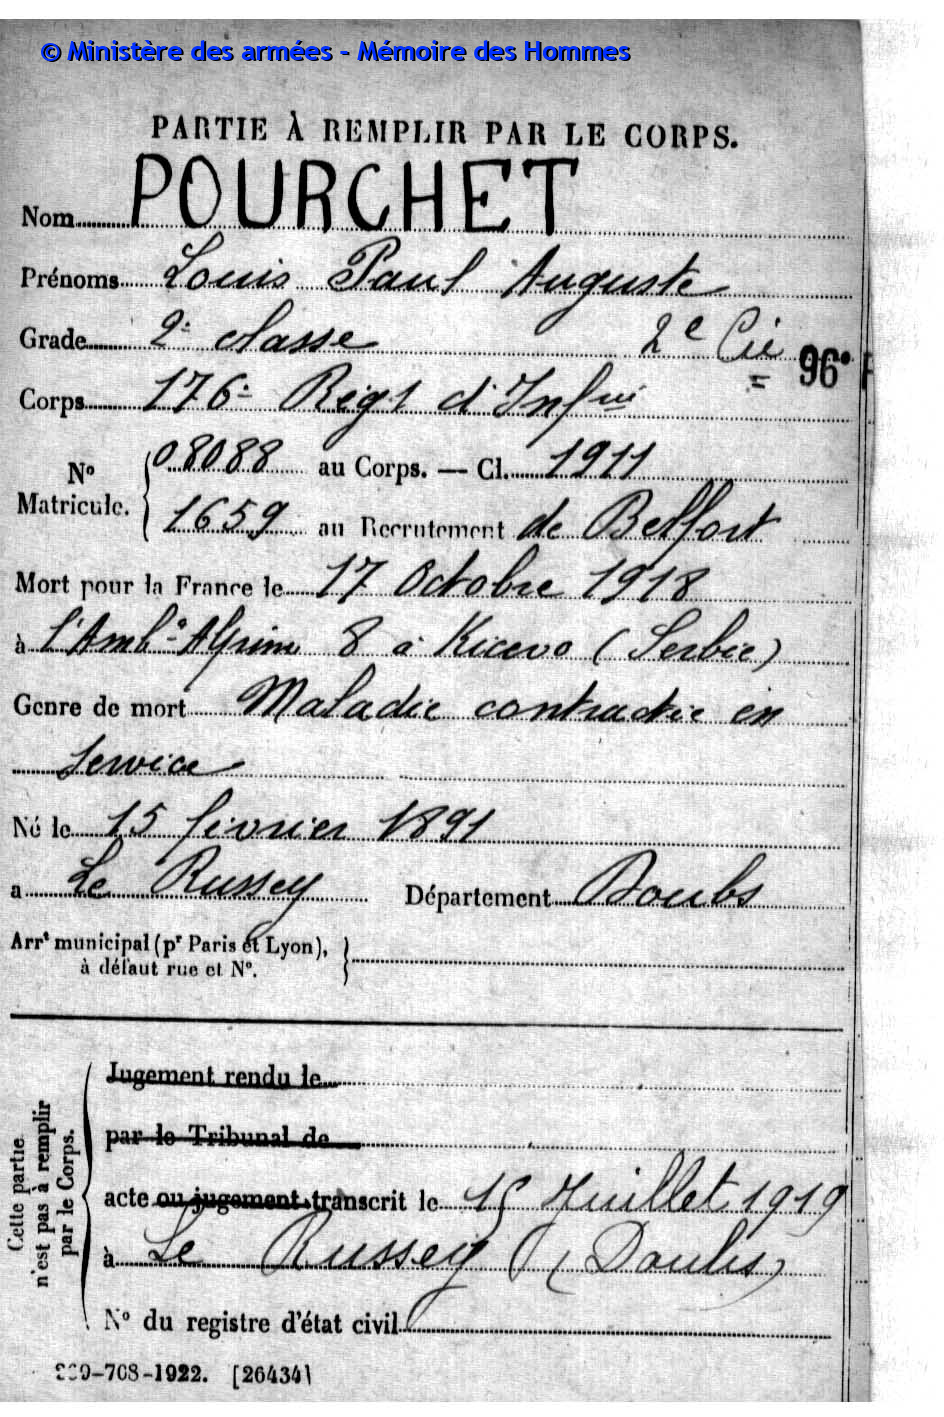 © Ministère des armées - Mémoire des Hommes
PARTIE À REMPLIR PAR LE CORPS.
Nom POURCHET
Prénoms Louis Paul Auguste
Grade 2e classe 2e Cie
96e
Corps 176e Régt d'Infrie
08088 au Corps. — Cl. 1911
No Matricule.
1659 au Recrutement de Belfort
Mort pour la France le 17 Octobre 1918
à l'Ambce Alpine 8 à Kicevo (Serbie)
Genre de mort Maladie contractée en
service
Né le 15 février 1891
à Le Russey Département Doubs
Arrt municipal (pr Paris et Lyon),
à défaut rue et No.
Cette partie n'est pas à remplir par le Corps.
Jugement rendu le
par le Tribunal de
acte ou jugement transcrit le 15 Juillet 1919
à Le Russey (Doubs)
No du registre d'état civil
-708-1922. [26434]